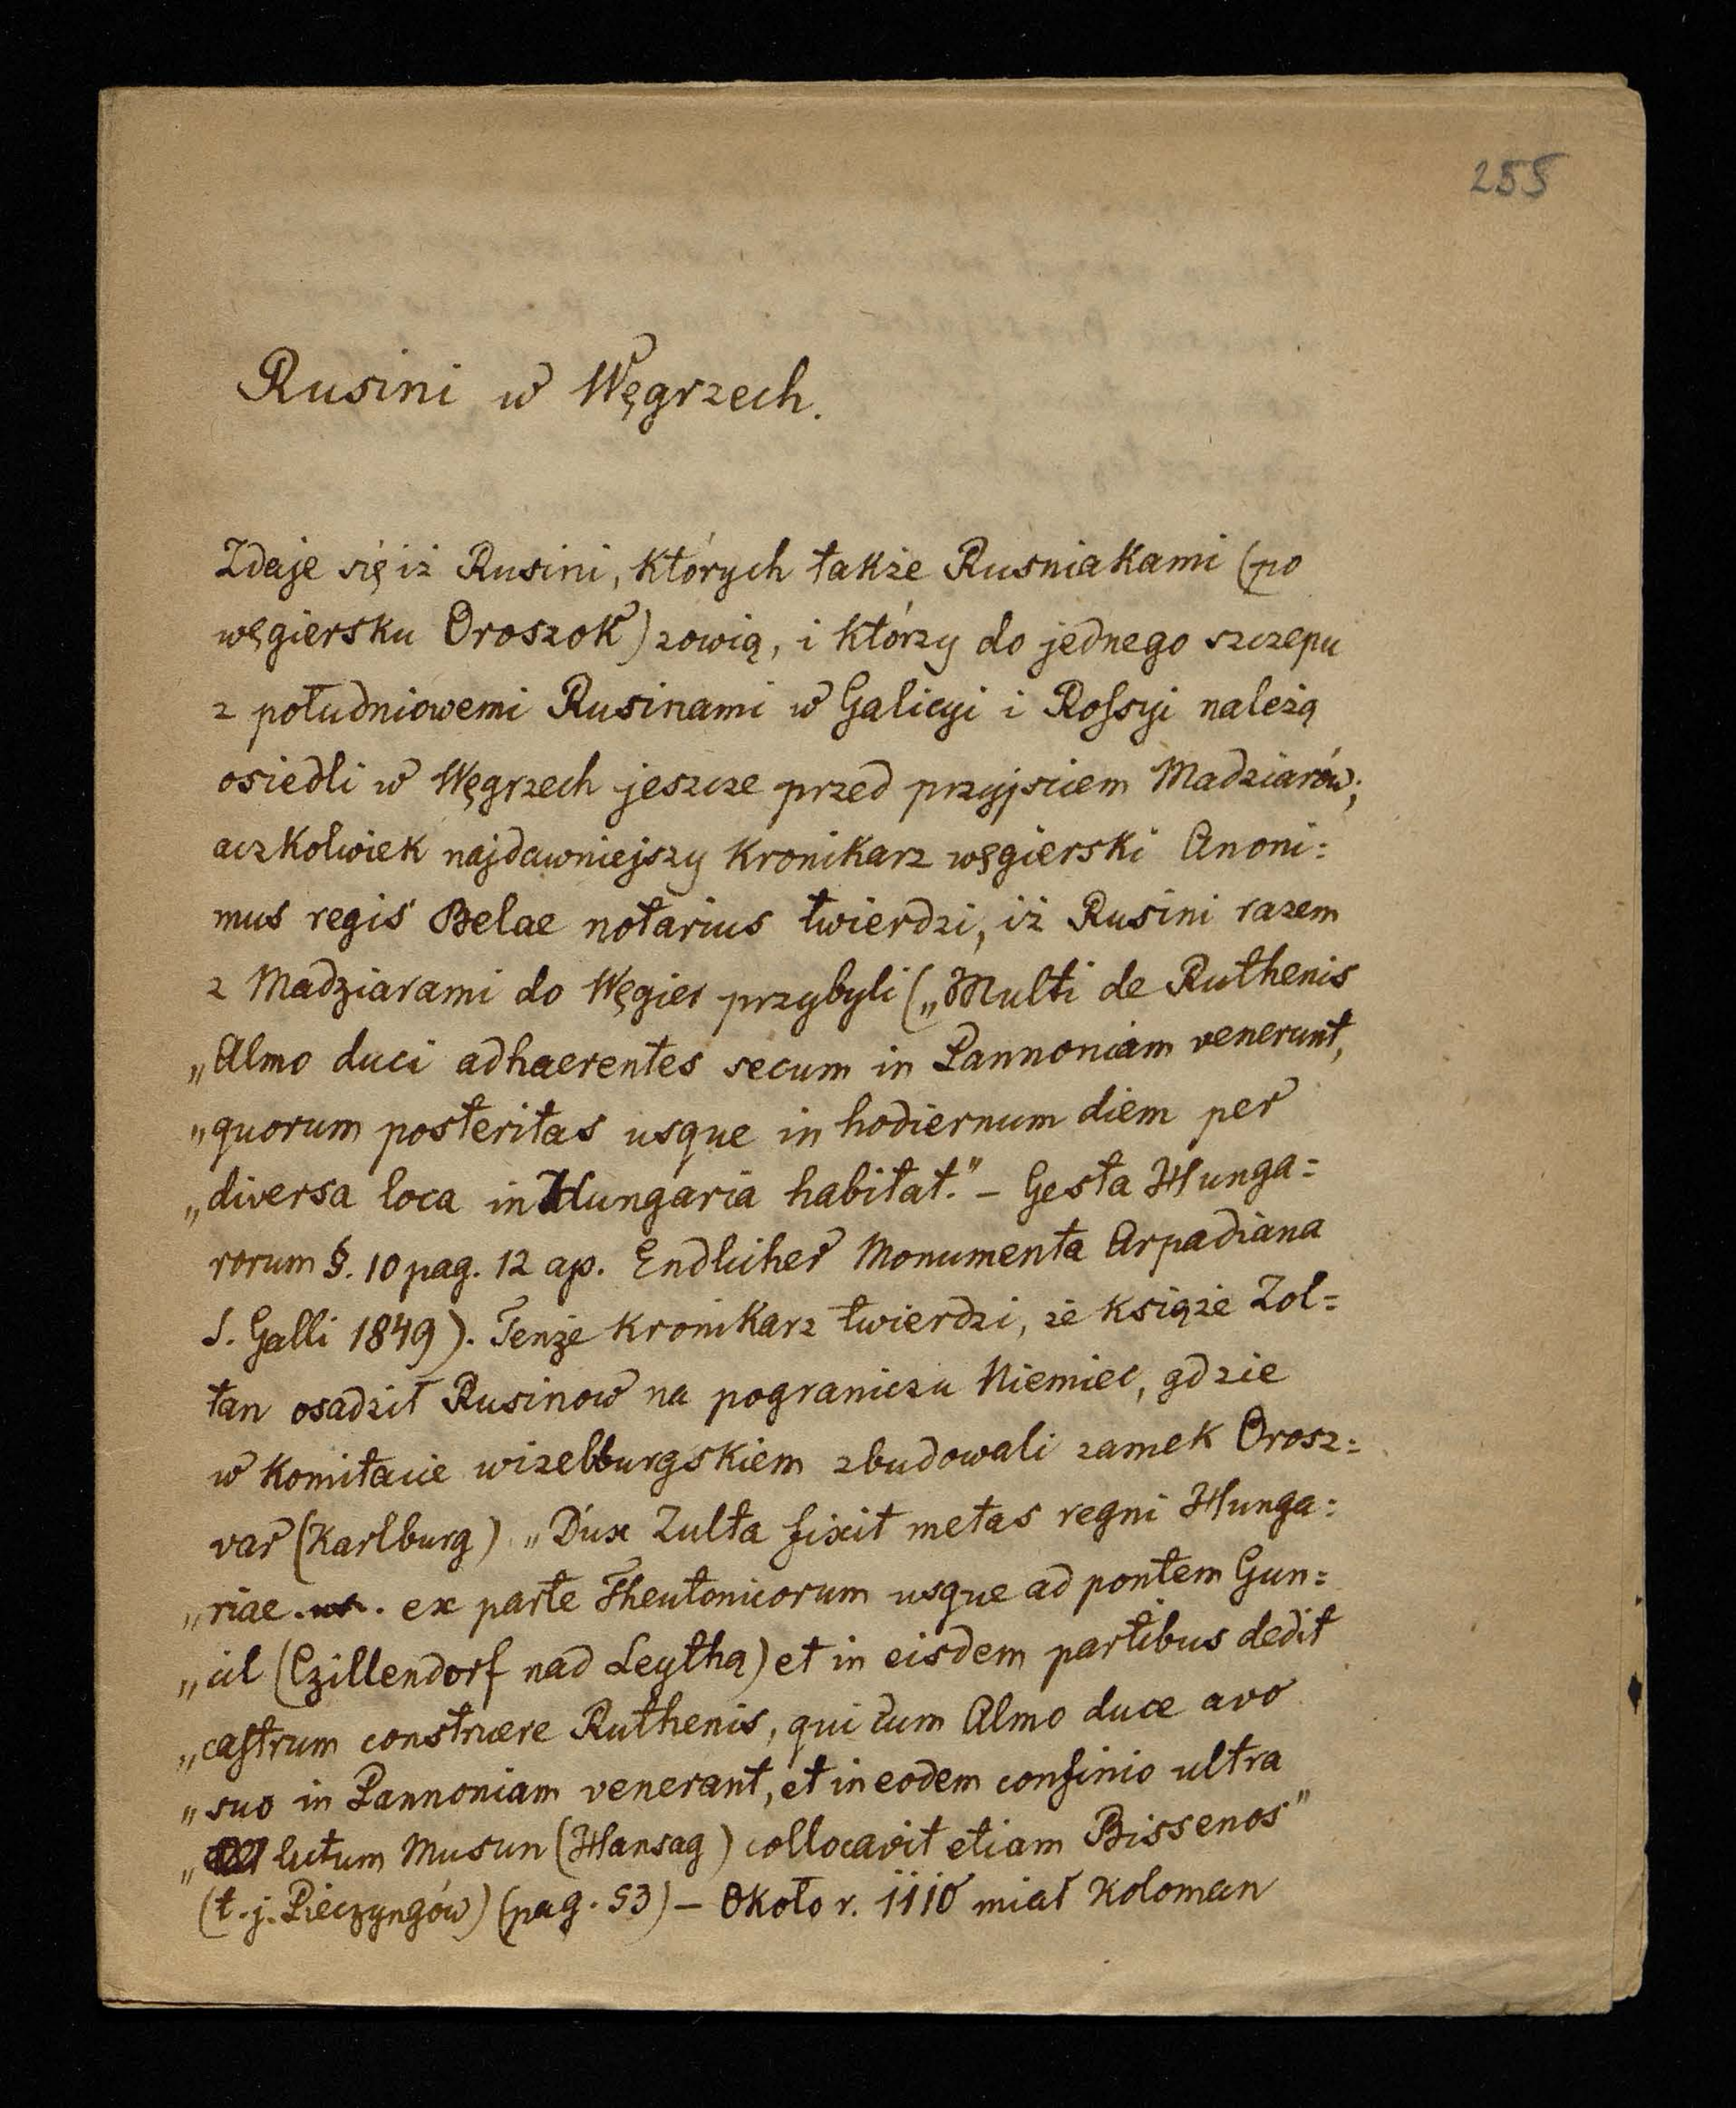 255
Rusini w Węgrzech.
Zdaje się iż Rusini, których także Rusniakami (po
węgiersku Oroszok) zowią, i którzy do jednego szczepu
z południowemi Rusinami w Galicyi i Rossyi należą
osiedli w Węgrzech jeszcze przed przyjsciem Madziarów;
aczkolwiek najdawniejszy kronikarz węgierski Anoni=
mus regis Belae notarius twierdzi, iż Rusini razem
z Madziarami do Węgier przybyli („Multi de Ruthenis
„Almo duci adhaerentes secum in Pannoniam venerunt,
„quorum posteritas usque in hodiernum diem per
„diversa loca in Hungaria habitat." – Gesta Hunga=
rorum §. 10 pag. 12 ap. Endlicher Monumenta Arpadiana
S. Galli 1849). Tenże kronikarz twierdzi, że książe Zol=
tan osadził Rusinow na pograniczu Niemiec, gdzie
w komitacie wizelburgskiem zbudowali zamek Orosz=
var (Karlburg) „Dux Zulta fixit metas regni Hunga=
„riae . . ex parte Theutonicorum usque ad pontem Gun=
„cil (Czillendorf nad Leythą) et in eisdem partibus dedit
„castrum construere Ruthenis, qui cum Almo duce avo
„suo in Pannoniam venerant, et in eodem confinio ultra
„lutum Musun (Hansag) collocavit etiam Bissenos"
(t. j. Pieczyngów) (pag. 53) – Około r. 1110 miał Koloman